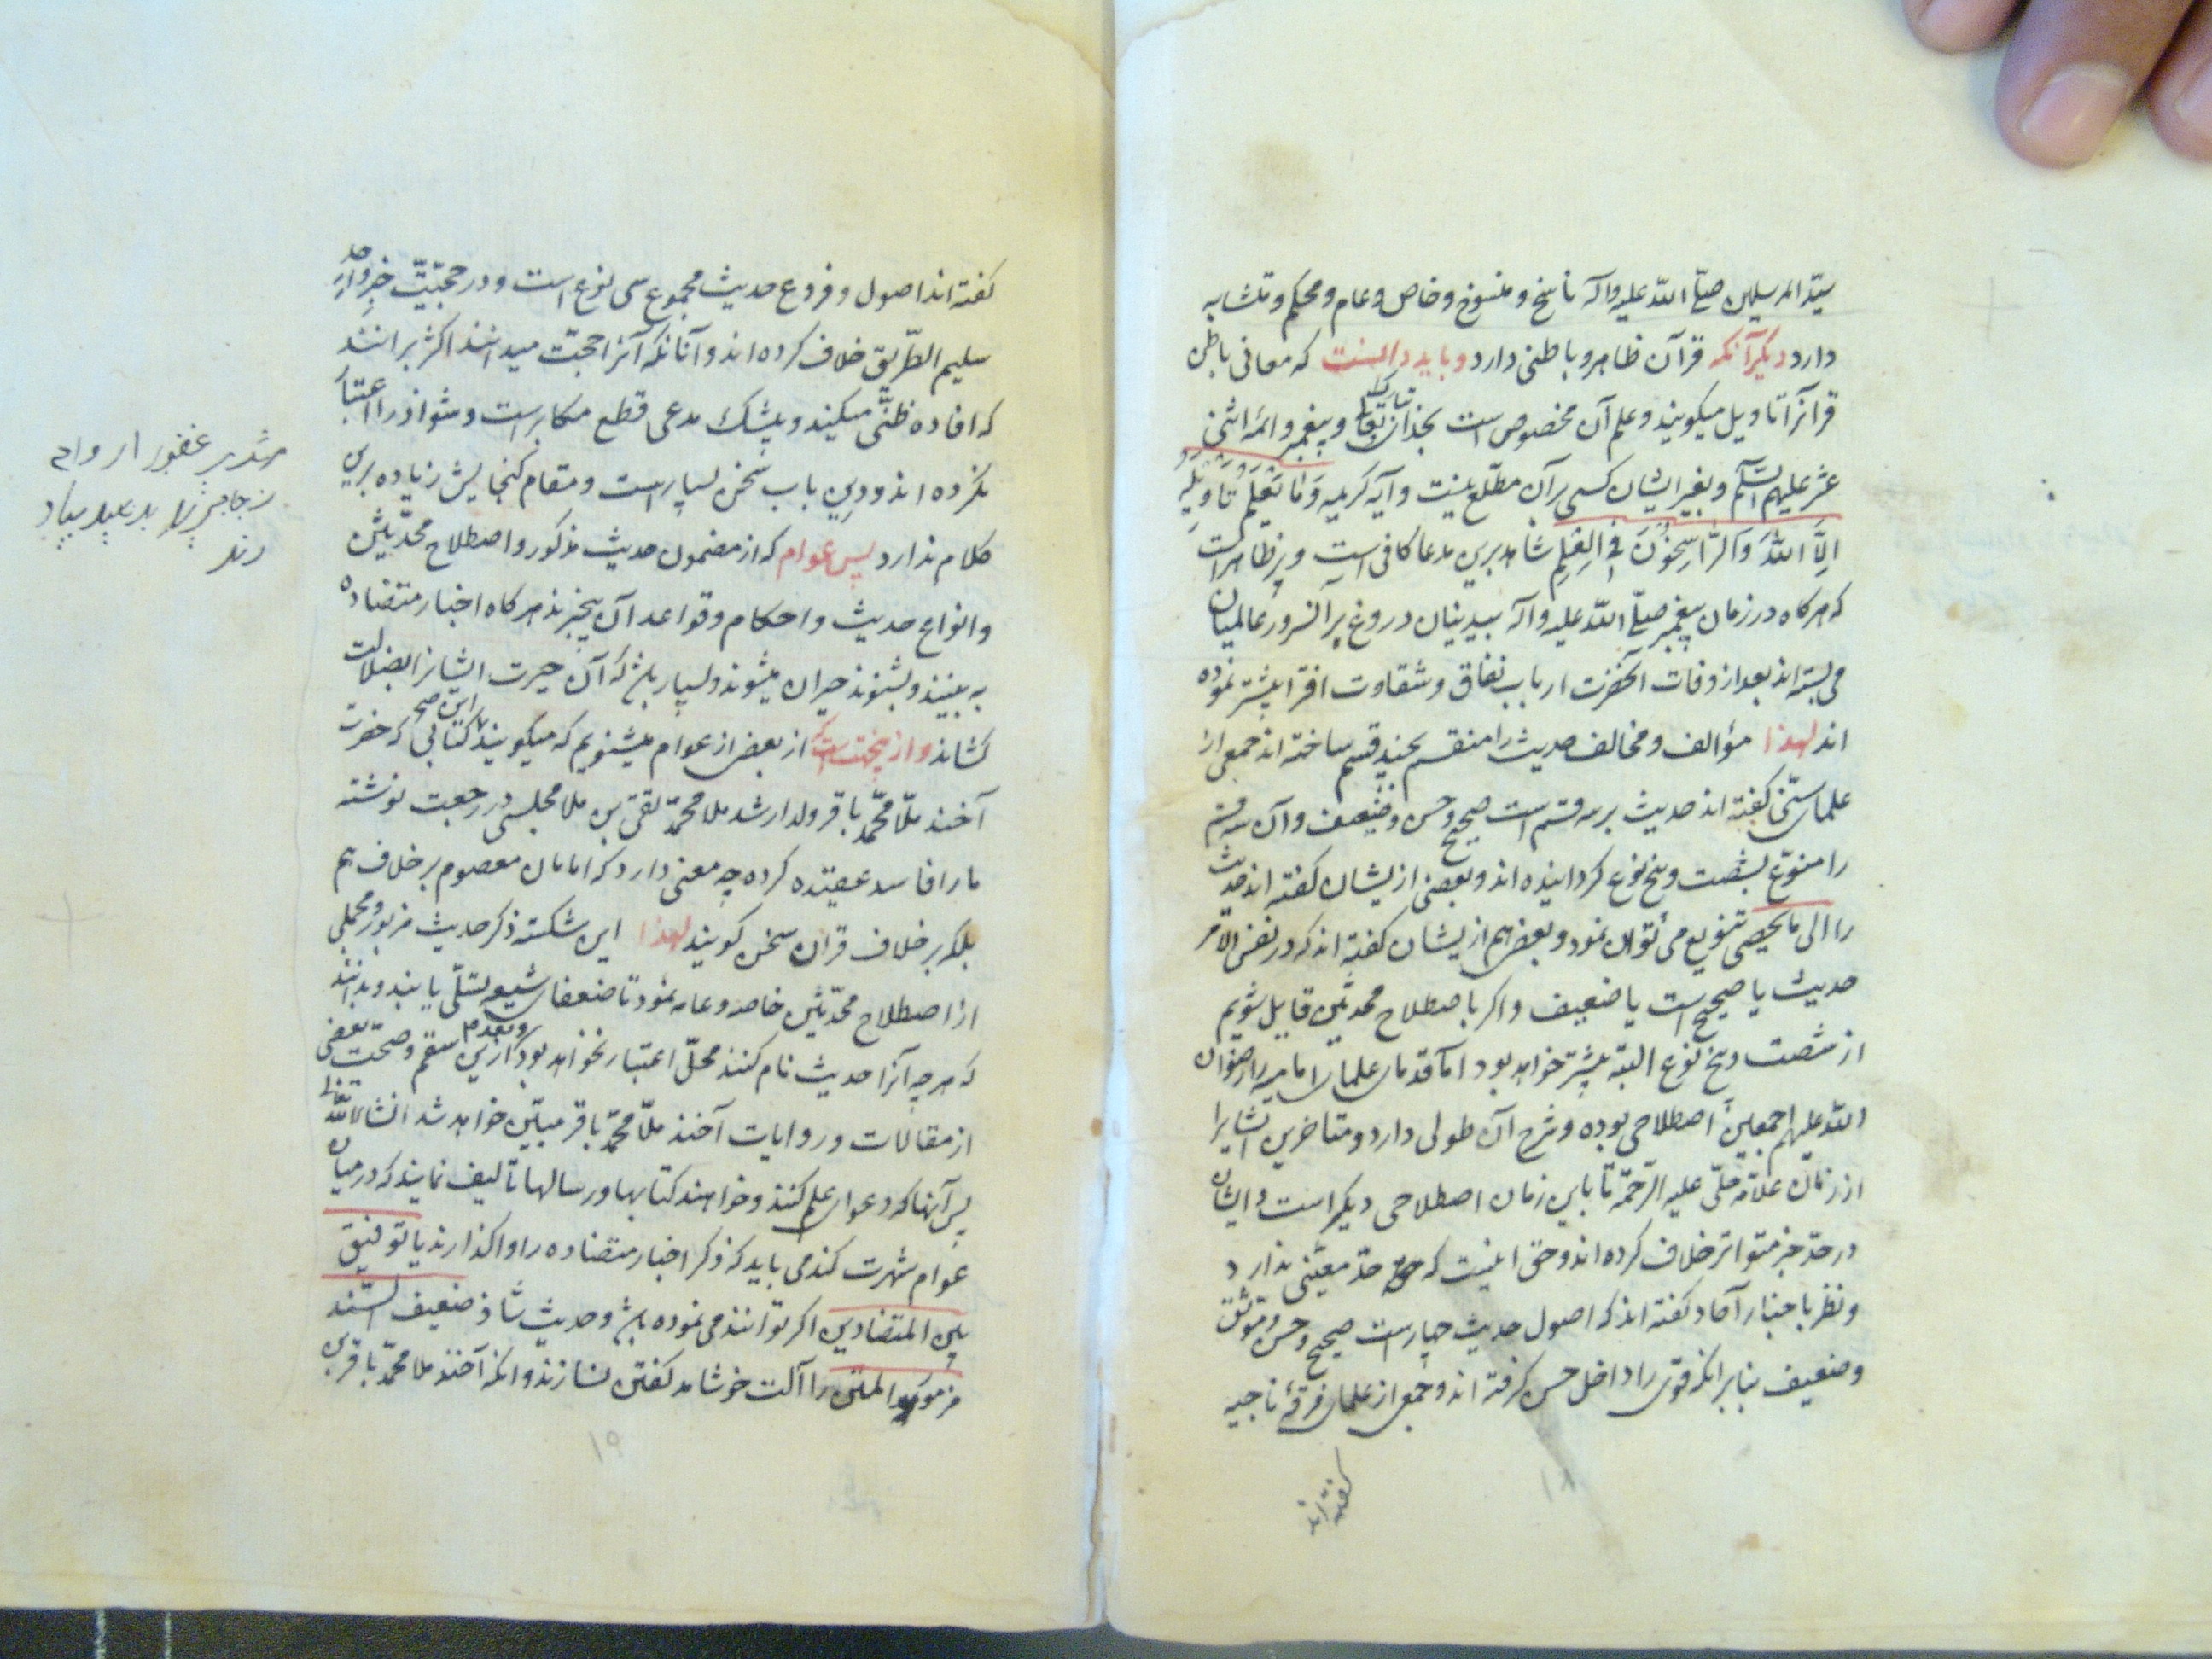 سیّد المرسلین صلّی اللّه علیه وآله ناسخ و منسوخ و خاص و عام و محکم و متشابه
دارد دیگر آنکه قرآن ظاهر و باطنی دارد و باید دانست که معانی باطن
قرآنرا تاویل میکویند و علم آن مخصوصست بخدای تبارک و تعالی و پیغمبر و ائمه اثنی
عشر علیهم السّلام و بغیر ایشان کسی بر آن مطّلع نیست و آیه کریمه وَمَا یَعْلَمُ تَأوِیلَهُ
اِلَّا اللّهُ وَالرّاسِخُونَ فِی العِلمِ شاهد برین مدعا کافی است و پر ظاهر است
که هرکاه در زمان پیغمبر صلّی اللّه علیه وآله بیدینان دروغ بر آنسرور عالمیان
می بسته اند بعد از وفات آنحضرت ارباب نفاق و شقاوت افترا بیشتر نموده
اند لهذا مؤالف و مخالف حدیث را منقسم بچند قسم ساخته اند جمعی از
علمای سنّی کفته اند حدیث بر سه قسم است صحیح و حسن و ضعیف و آن سه قسم
را منوّع بشصت و پنج نوع کردانیده اند و بعضی ازیشان کفته اند حدیث
را الی مالایحصی تنویع می توان نمود و بعضی هم ازیشان کفته اند که در نفس الامر
حدیث یا صحیح است یا ضعیف و اکر باصطلاح محدثین قایل شویم
از شصت و پنج نوع البتّه بیشتر خواهد بود امّا قدمای علمای امامیه را رضوان
اللّه علیهم اجمعین اصطلاحی بوده و شرح آن طولی دارد و متاخرین ایشانرا
از زمان علاّمه حلّی علیه الرّحمة تا باین زمان اصطلاحی دیکر است و ایشان
در حدّ خبر متواتر خلاف کرده اند و حق اینست که حدّ معیّنی ندارد
و نظر باخبار آحاد کفته اند که اصول حدیث چهار است صحیح و حسن و موثّق
و ضعیف بنابر آنکه قوی را داخل حسن کرفته اند و جمعی از علمای فرقهٔ ناجیه
کفته اند
۱۸
کفته اند اصول و فروع حدیث مجموع سی نوع است و در حجّیّت خبر واحد
سلیم الطّریق خلاف کرده اند و آنانکه آنرا حجّت میدانند اکثر برانند
که افاده ظنّی میکند و بیشک مدعی قطع مکابر است و شواذ را اعتبار
نکرده اند و درین باب سخن بسیار است و مقام کنجایش زیاده برین
کلام ندارد پس عوام که از مضمون حدیث مذکور و اصطلاح محدّثین
و انواع حدیث و احکام و قواعد آن بیخبرند هرکاه اخبار متضاده
به بینند و بشنوند حیران میشوند و بسیار باشد که آن حیرت ایشانرا بضلالت
کشاند و ازینجهتست که از بعضی از عوام میشنویم که میکویند این کتابی که حضرت
آخند ملّا محمّد باقر ولد ارشد ملا محمّد تقی بن ملا مجلسی در رجعت نوشته
ما را فاسد عقیده کرده چه معنی دارد که امامان معصوم بر خلاف هم
بلکه بر خلاف قران سخن کویند لهذا این شکسته ذکر حدیث مزبور و مجملی
از اصطلاح محدّثین خاصه و عامه نمود تا ضعفای شیعه تسلّی یابند و بدانند
که هرچه آنرا حدیث نام کنند محلّ اعتبار نخواهد بود و بعد ازین سقم و صحت بعضی
از مقالات و روایات آخند ملّا محمّد باقر مبیّن خواهد شد انشاءاللّه تعالی
پس آنها که دعوای علم کنند و خواهند کتابها و رسالها تالیف نمایند که در میان
عوام شهرت کند می باید که ذکر اخبار متضاده را واکذارند یا توفیق
بین المتضادین اکر توانند می نموده باشند و حدیث شاذ ضعیف السّند
را آلت خوشامد کفتن نسازند و آنکه آخند ملا محمّد باقر بن
۱۹